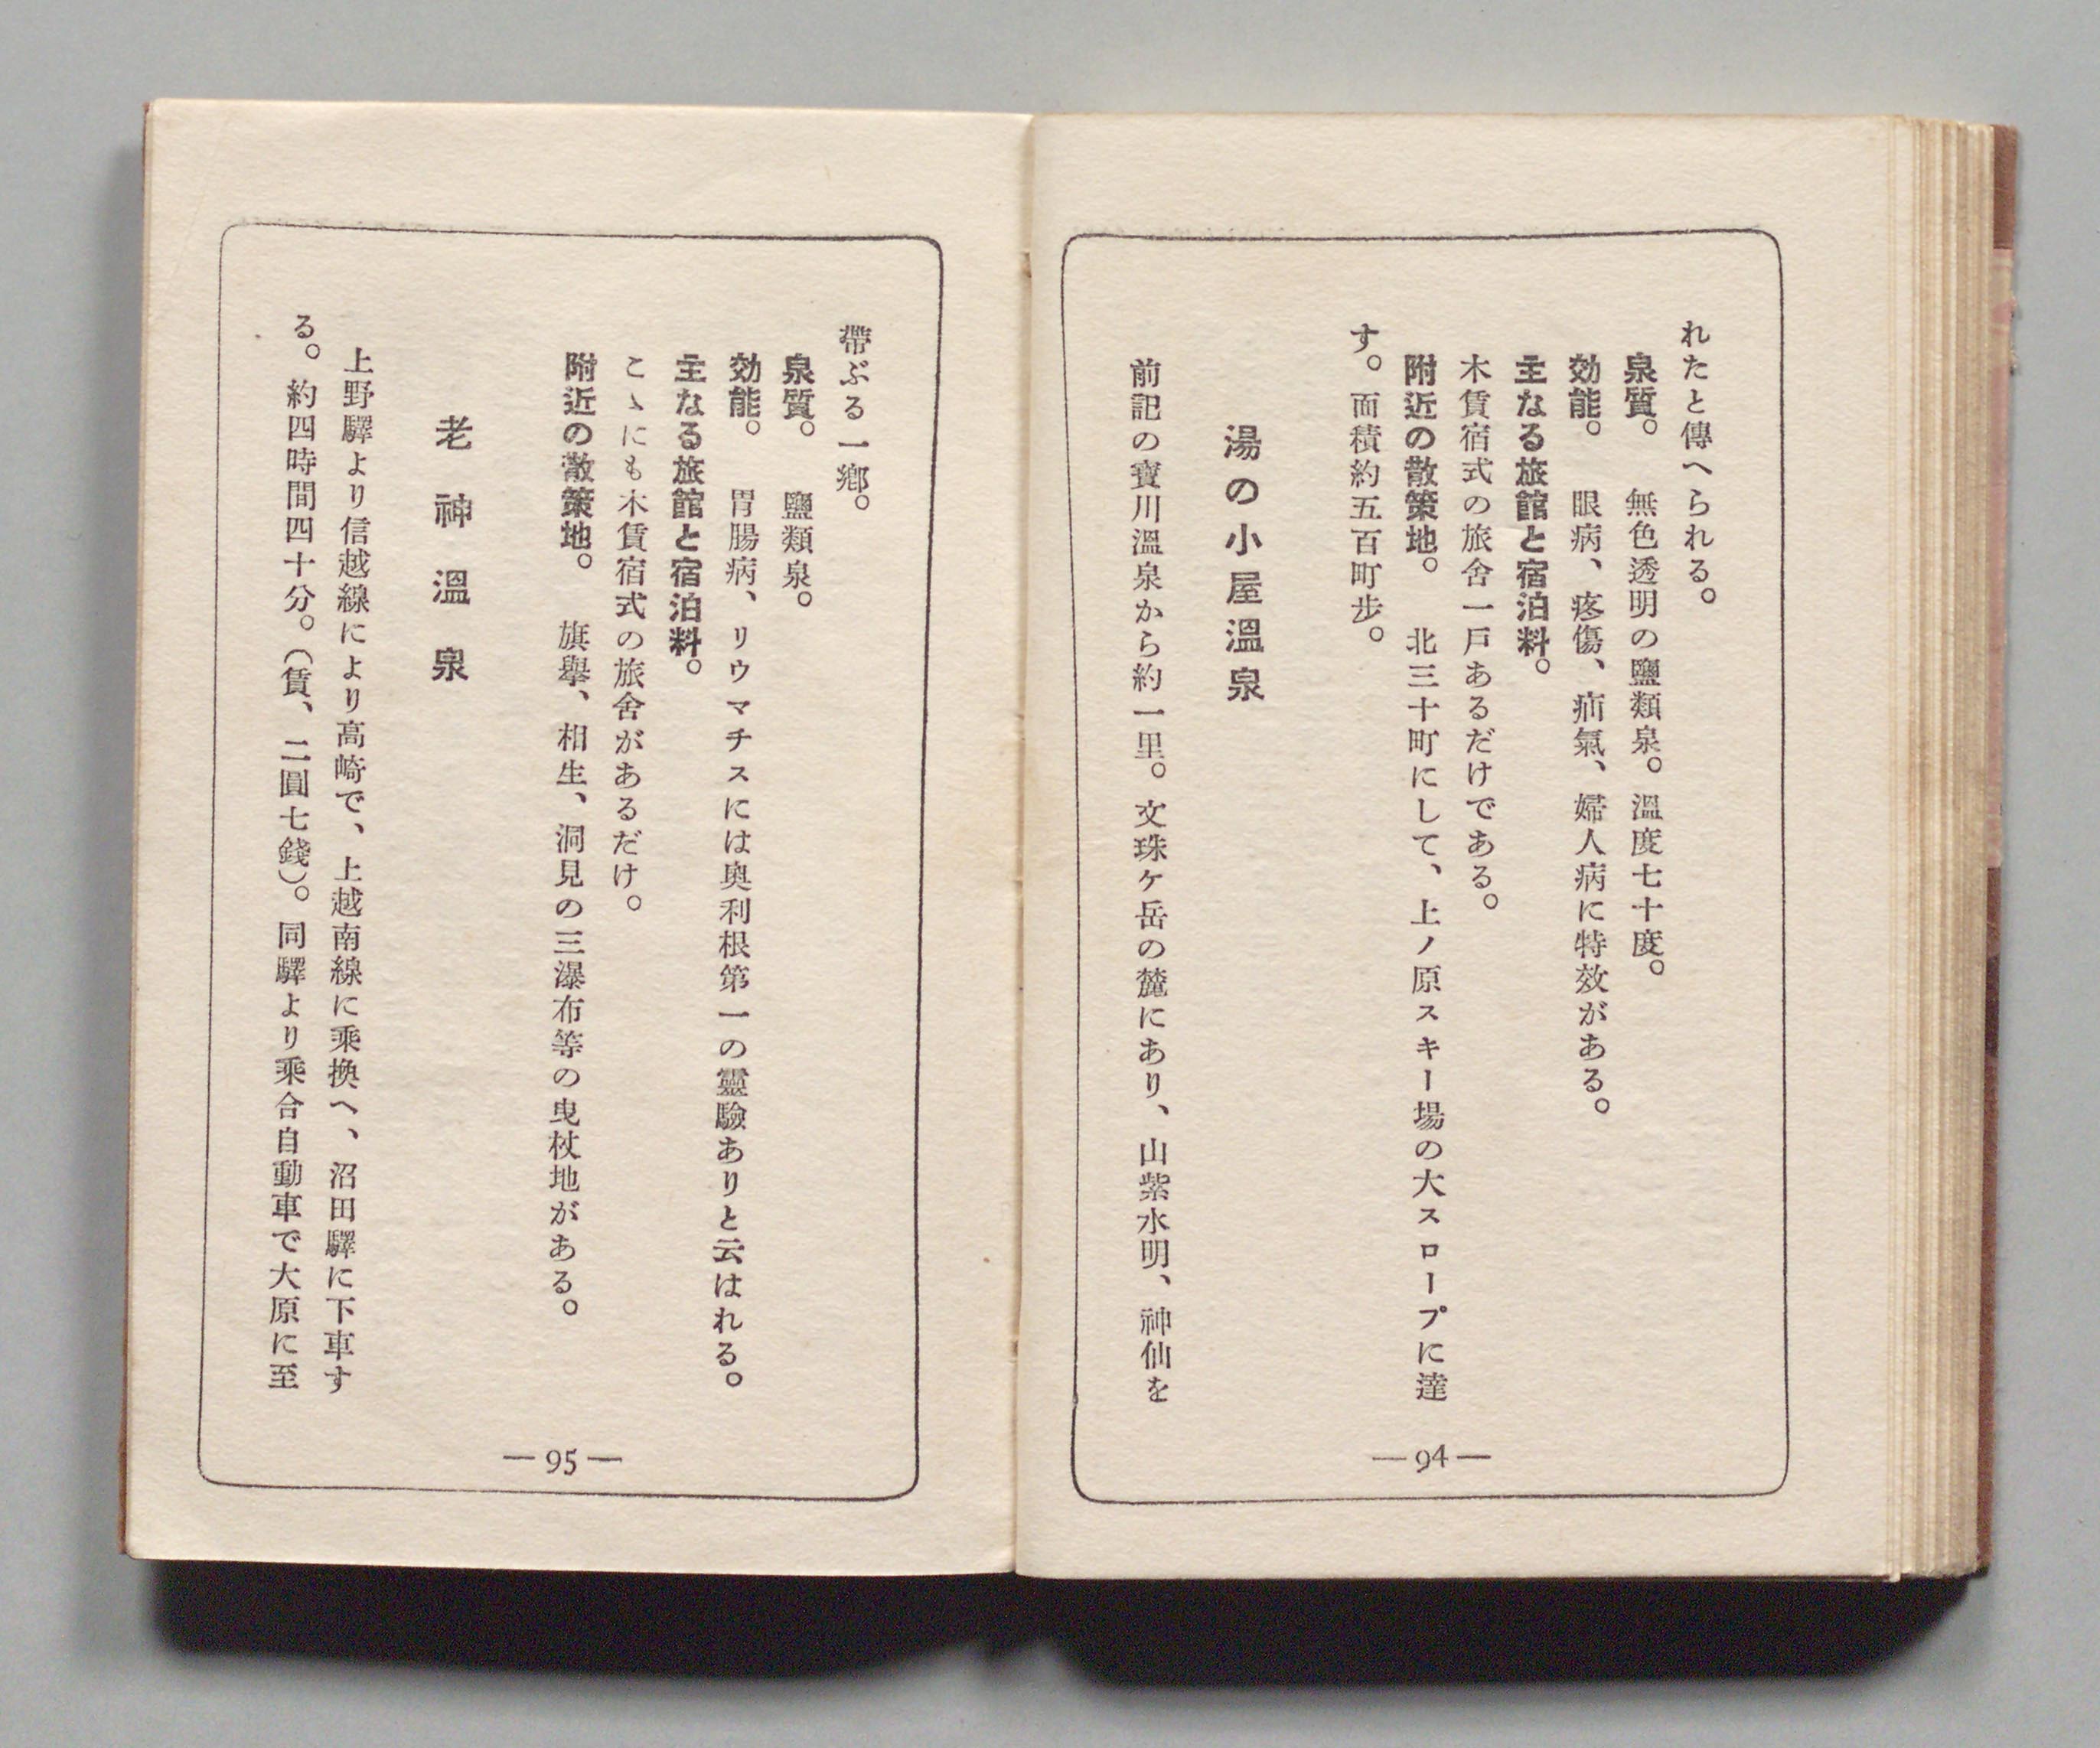 れたと傳へられる。
泉質。　無色透明の鹽類泉。溫度七十度。
効能。　眼病、疼傷、疝氣、婦人病に特效がある。
主なる旅館と宿泊料。
木賃宿式の旅舍一戸あるだけである。
附近の散策地。　北三十町にして、上ノ原スキー場の大スロープに達
す。面積約五百町步。
湯の小屋溫泉
前記の寶川溫泉から約一里。文珠ケ岳の麓にあり、山紫水明、神仙を
—94—
帶ぶる一鄕。
泉質。　鹽類泉。
効能。　胃腸病、リウマチスには奥利根第一の靈驗ありと云はれる。
主なる旅館と宿泊料。
こゝにも木賃宿式の旅舍があるだけ。
附近の散策地。　旗擧、相生、洞見の三瀑布等の曳杖地がある。
老神溫泉
上野驛より信越線により高崎で、上越南線に乘換へ、沼田驛に下車す
る。約四時間四十分。（賃、二圓七錢）。同驛より乘合自動車で大原に至
—95—